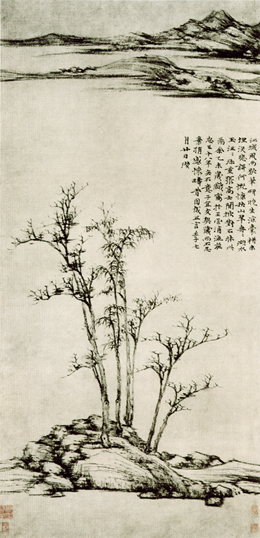 江城風雨歇筆研晚生涼囊楮未
埋沒悲歌何慨慷秋山翠冉冉湖水
玉汪汪珍重張高士閒披對石牀此
圖余乙未歲戲寫於王雲浦漁莊
忽已十八年矣不意子宜友契藏而不忍
棄捐感懷疇昔因成五言壬子七
月廿日瓚